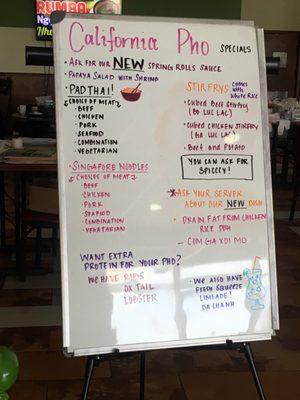 RUMBA
California Pho SPECIALS
• ASK FOR OUR NEW SPRING ROLLS SAUCE
• PAPAYA SALAD WITH SHRIMP
• PAD THAI:
CHOICE OF MEAT
• BEEF
• CHICKEN
• PORK
• SEAFOOD
• COMBINATION
• VEGETARIAN
• SINGAPORE NOODLES
CHOICES OF MEAT
• BEEF
• CHICKEN
• PORK
• SEAFOOD
• COMBINATION
• VEGETARIAN
WANT EXTRA
PROTEIN FOR YOUR PHO?
WE HAVE RIBS
OX TAIL
LOBSTER
STIR FRYS COMES WITH WHITE RICE
• Cubed Beef Stirfry
(BO LUC LAC)
• Cubed CHICKEN STIRFRY
(GA LUC LAC)
• Beef and Potato
YOU CAN ASK FOR
SPICCCY!
ASK YOUR SERVER
ABOUT OUR NEW DISH
• DRAIN FAT FRIM CHICKEN
RICE DISH
- COM GA XOI MO
• WE ALSO HAVE
FRESH SQUEEZE
LIMEADE!
DA CHANH